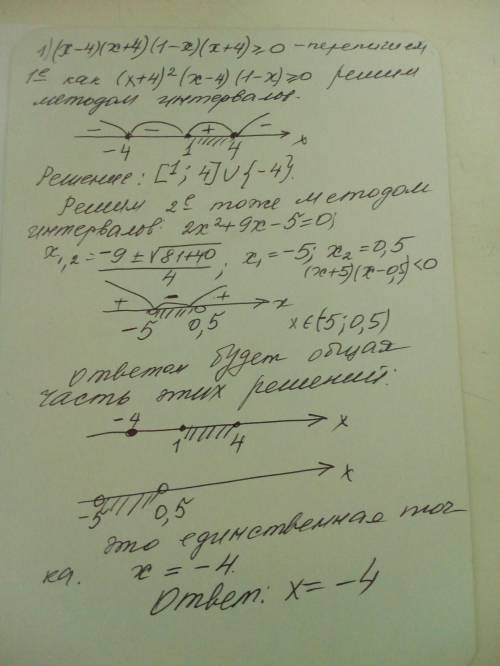 1) (x-4)(x+4)(1-x)(x+4)≥0 - перепишем
1е как (x+4)²(x-4)(1-x)≥0 решим
методом интервалов.
- - + -
-4 1 4 x
Решение: [1; 4]∪{-4}.
Решим 2е тоже методом
интервалов: 2x²+9x-5=0;
x₁,₂ = (-9±√(81+40))/4; x₁=-5; x₂=0,5
(x+5)(x-0,5)<0
+ - + x
-5 0,5 x∈(-5; 0,5)
Ответом будет общая
часть этих решений:
-4 1 4 x
-5 0,5 x
это единственная точ-
ка. x = -4.
Ответ: x = -4